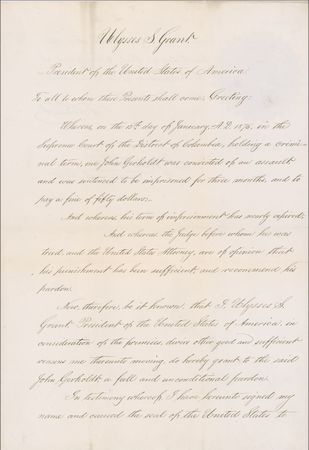 Ulysses S. Grant,
President of the United States of America,
To all to whom these Presents shall come, Greeting:
Whereas, on the 15th day of January, A.D. 1876, in the
Supreme Court of the District of Columbia, holding a crimi-
nal term, one John Gerholdt was convicted of an assault
and was sentenced to be imprisoned for three months, and to
pay a fine of fifty dollars;
And whereas, his term of imprisonment has nearly expired;
And whereas the Judge before whom he was
tried, and the United States Attorney, are of opinion that
his punishment has been sufficient, and recommend his
pardon.
Now, therefore, be it known, that I, Ulysses S.
Grant, President of the United States of America, in
consideration of the premises, divers other good and sufficient
reasons me thereunto moving, do hereby grant to the said
John Gerholdt, a full and unconditional pardon.
In testimony whereof, I have hereunto signed my
name and caused the seal of the United States to